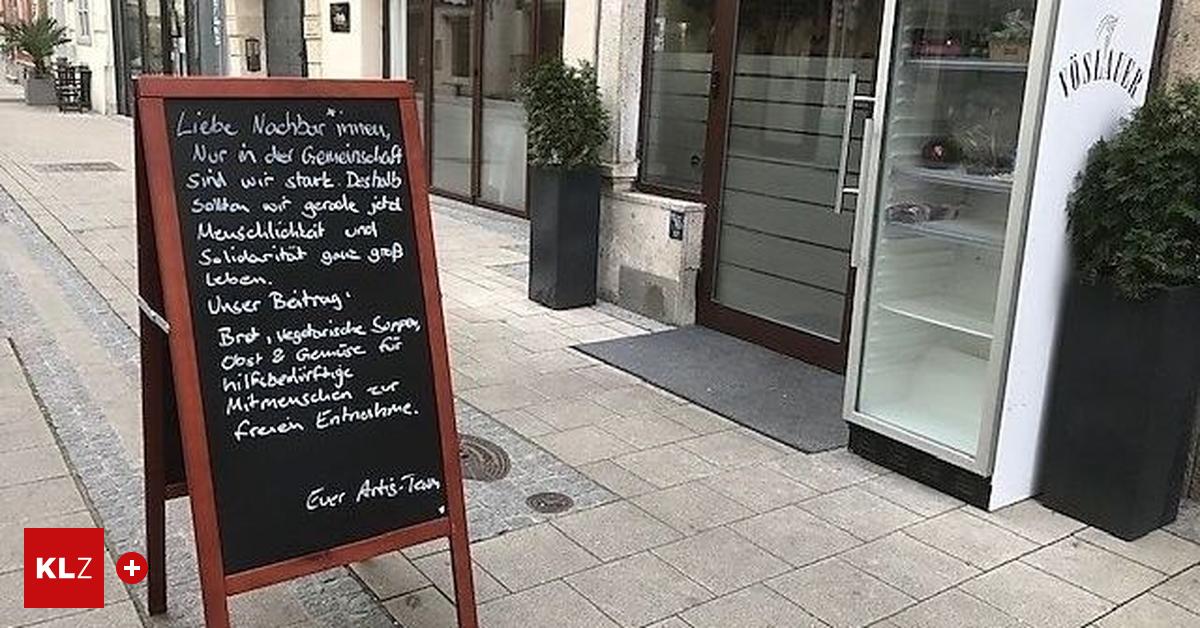 Liebe Nachbar*innen,
Nur in der Gemeinschaft
sind wir stark. Deshalb
sollten wir gerade jetzt
Menschlichkeit und
Solidarität ganz groß
leben.
Unser Beitrag:
Brot, vegetarische Suppen,
Obst & Gemüse für
hilfsbedürftige
Mitmenschen zur
freien Entnahme.
Euer Artis-Team
VÖSLAUER
KLZ +